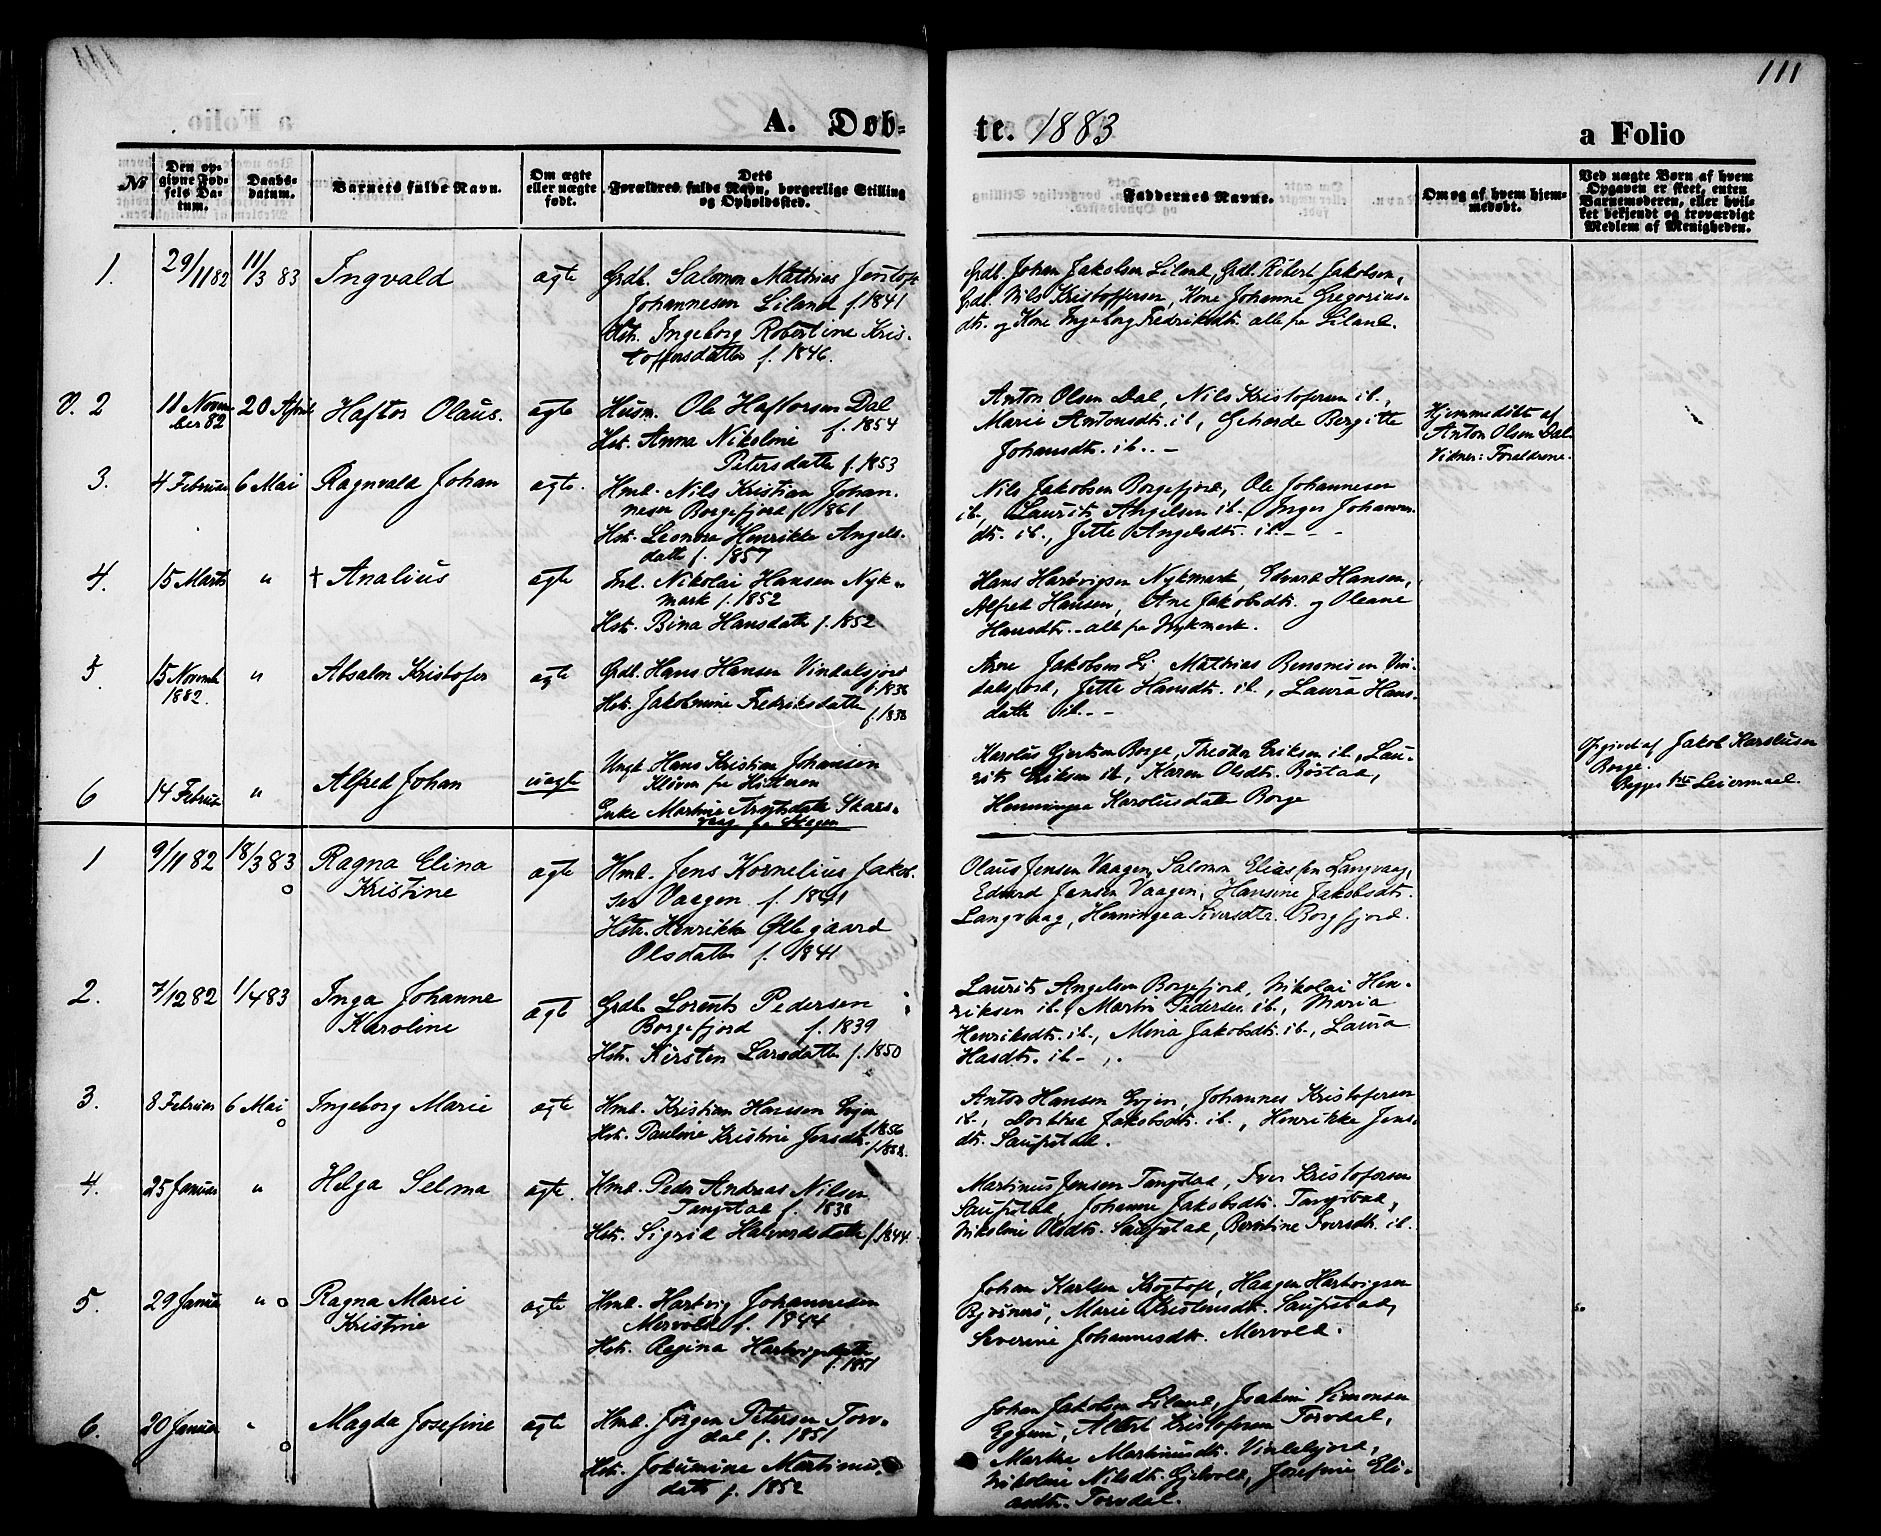 111
A. Døb-
te. 1883
a Folio
No
Den op-
givne Fød-
sels Da-
tum.
Daabs-
datum.
Barnets fulde Navn.
Om ægte
eller uægte
født.
Dets
Forældres fulde Navn, borgerlige Stilling
og Opholdssted.
Faddernes Navne.
Om og af hvem hjem-
medøbt.
Ved uægte Børn af hvem
Opgaven er skeet, enten
Barnemoderen, eller hvil-
ket bekjendt og troværdigt
Medlem af Menigheden.
1. 29/11 82 11/3 83 Ingvald ægte Grdb. Salomon Mathias Jentoft
Johannesen Liland f. 1841
Hstr. Ingeborg Robertine Kris-
toffersdatter f. 1846.
Grdb. Johan Jakobsen Liland, Grdb. Ribert Jakobsen,
Grdb. Nils Kristoffersen, Kone Johanne Gregorius-
dtr. og Kone Ingeborg Fredriksdtr. alle fra Liland.
V. 2 11 Novem-
ber 82 20 April Haftor Olaus. ægte Husm. Ole Haftorsen Dal
f. 1854
Hst. Anna Nikoline
Petersdatter f. 1853
Anton Olsen Dal, Nils Kristofersen ib.,
Marie Antonsdtr. ib., Gehorde Bergitte
Johansdtr. ib. -
Hjemmedøbt af
Anton Olsen Dal
Vidner: Forældrene.
3. 4 Februar 6 Mai Ragnvald Johan ægte. Hmd. Nils Kristian Johan-
nesen Borgefjord f. 1861
Hst. Leonora Henrikke Angels-
datter f. 1857
Nils Jakobsen Borgefjord, Ole Johannesen
ib., Laurits Angelsen ib., Inger Johannes-
dtr. ib., Jette Angelsdtr. ib. - - -
4. 15 Marts " † Analius ægte Ind. Nikolai Hansen Nyk-
mark f. 1852
Hst. Bina Hansdatter f. 1852
Hans Hartvigsen Nykmark, Edvard Hansen,
Alfred Hansen, Ane Jakobsdtr. og Oleane
Hansdtr. - alle fra Nykmark.
5. 15 Novemb.
1882. " Absalon Kristofer ægte Grdb. Hans Hansen Vindalsfjord
f. 1836
Hst. Jakobmine Fredriksdatter
f. 1838
Arne Jakobsen Li, Mathias Bensnesen Vin-
dalsfjord, Jette Hansdtr. ib., Laura Hans-
datter ib. - -
6 14 Februar " Alfred Johan uægte Ungk. Hans Kristian Johansen
Kløven fra Hitteren
Enke Martine
vaag fra Skagen
Karolus Gjertsen Borge, Theodor Eriksen ib., Lau-
rits Eriksen ib., Karen Olsdtr. Bøstad,
Henningea Karolusdatter Borge
Opgivet af Jakob Karolusen
Borge.
Begges 1ste Leiermaal.
1 9/11 82 18/3 83 Ragna Elina
Kristine ægte Hmd. Jens Kornelius Jakob-
sen Vaagen f. 1841
Hstr. Henrikke Ollegaard
Olsdatter f. 1841
Olaus Jensen Vaagen, Salomon Eliassen Langvaag,
Edvard Jansen Vaagen, Hansine Jakobsdtr.
Langvaag, Henningea Siversdtr. Borgfjord.
2. 7/12 82 1/4 83 Inga Johanne
Karoline ægte Grdb. Lorents Pedersen
Borgefjord f. 1839
Hst. Kirsten Larsdatter f. 1850
Laurits Angelsen Borgefjord, Nikolai Hen-
riksen ib., Martin Pedersen ib., Maria
Henriksdtr. ib., Mina Jakobsdtr. ib., Laura
Hasdtr. ib -
3. 8 Februar 6 Mai Ingeborg Marie ægte Hmd. Kristian Hansen Evjen
f. 1856
Hst. Pauline Kristine Jensdtr.
f. 1858.
Anton Hansen Evjen, Johannes Kristofersen
ib., Dorthea Jakobsdtr. ib., Henrikke Jens-
dtr. Saupstad.
4. 25 Januar " Helga Selma ægte. Hmd. Peder Andreas Nilsen
Tangstad f. 1838
Hstr. Sigrid Halvordsdatter f. 1844.
Martinus Jensen Tangstad, Iver Kristofersen
Saupstad, Johanne Jakobsdtr. Tangstad,
Nikoline Olsdtr. Saupstad, Berntine Iversdtr. ib.
5. 29 Januar " Ragna Marie
Kristine ægte Hmd. Hartvig Johannesen
Mervold f. 1844
Hst. Regina Hartvigsdatter
f. 1851
Johan Karlsen Krogtoft, Haagen Hartvigsen
Bjørnes, Marie Kristensdtr. Saupstad,
Severine Johannesdtr. Mervold.
6. 20 Januar " Magda Josefine ægte Hmd. Jörgen Petersen Torv-
dal f. 1851
Hst. Jokumine Martinus-
datter f. 1852
Johan Jakobsen Liland, Joakim Simonsen
Eggum, Albert Kristofersen Torvdal,
Marthe Martinusdtr. Vindalsfjord,
Nikoline Nilsdtr. Gjelvold, Josefine Eli-
asdtr. Torvdal.